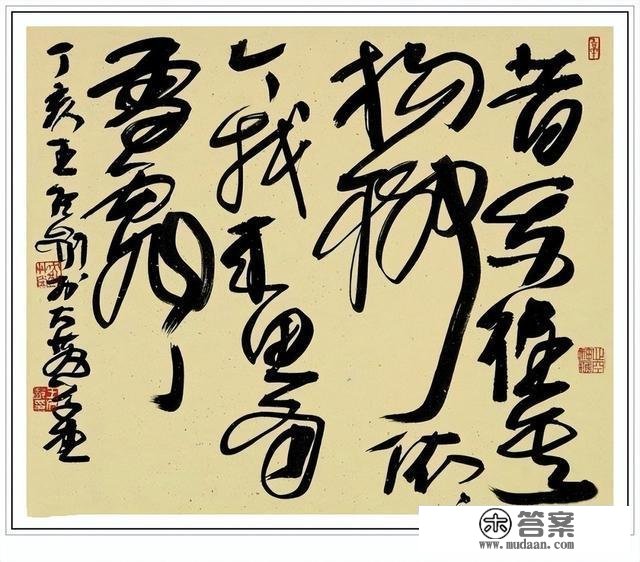 昔我往矣
楊柳依〻
今我来思雨
雪霏〻
丁亥王冬齡於
答案
www.mudaan.com